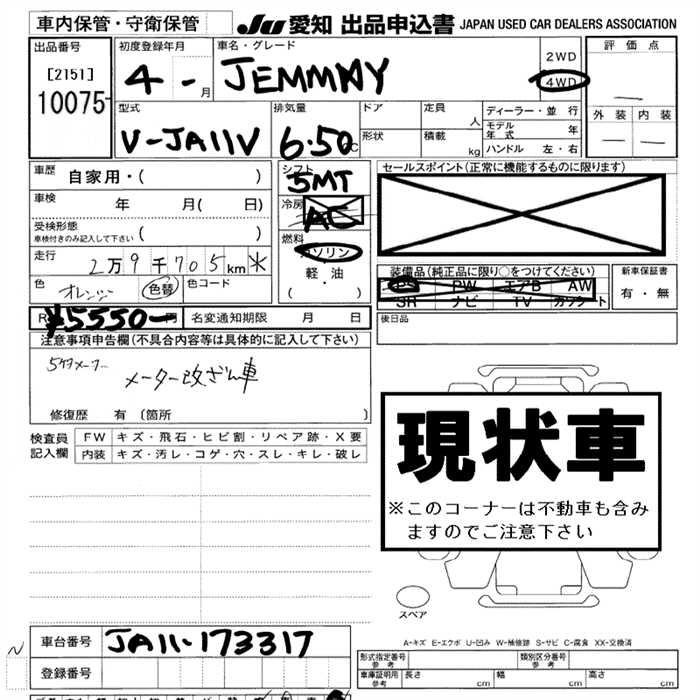 車内保管・守衛保管 JU 愛知 出品申込書 JAPAN USED CAR DEALERS ASSOCIATION
出品番号 初度登録年月 車名・グレード 2WD 評価点
[2151] 4 - 月 JEMMNY 4WD
10075- 外装 内装
型式 排気量 ドア 定員 人 ディーラー・並行
V-JA11V 6.50 cc 形状 積載 kg モデル年式 年
ハンドル 左・右
車歴 自家用・( ) シフト 5MT セールスポイント(正常に機能するものに限ります)
車検 年 月( 日) 冷房 AC
受検形態
車検付きのみ記入して下さい ( ) 燃料 ガソリン
走行 2万9千705km ※ 軽・油 装備品(純正品に限り○をつけてください) 新車保証書
色 オレンジ 色替 色コード ( ・ ) PS PW エアB AW 有・無
SR ナビ TV カワシート
R ¥5550- 円 名変通知期限 月 日 後日品
注意事項申告欄(不具合内容等は具体的に記入して下さい)
5ケタメーター
メーター改ざん車
修復歴 有 〔箇所 〕
検査員 FW キズ・飛石・ヒビ割・リペア跡・X要
記入欄 内装 キズ・汚レ・コゲ・穴・スレ・キレ・破レ
現状車
※このコーナーは不動車も含み
ますのでご注意下さい
スペア
A-キズ E-エクボ U-凹み W-補修跡 S-サビ C-腐食 XX-交換済
車台番号 JA11-173317
登録番号
形式指定番号 参考 類別区分番号 参考
車庫証明用 参考 長さ cm 幅 cm 高さ cm
N